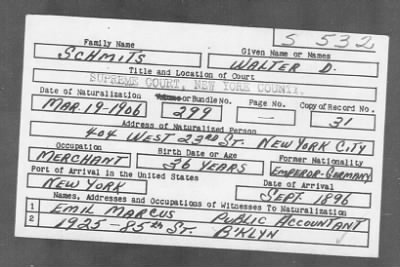 S 532
Family Name Given Name or Names
SCHMITS WALTER D.
Title and Location of Court
SUPREME COURT, NEW YORK COUNTY.
Date of Naturalization Volume or Bundle No. Page No. Copy of Record No.
MAR. 19-1906 299 — 31
Address of Naturalized Person
404 WEST 23rd ST. NEW YORK CITY
Occupation Birth Date or Age Former Nationality
MERCHANT 36 YEARS EMPEROR-GERMANY
Port of Arrival in the United States Date of Arrival
NEW YORK SEPT. 1896
Names, Addresses and Occupations of Witnesses To Naturalization
1 EMIL MARCUS PUBLIC ACCOUNTANT
2 1925-85th ST. B'KLYN